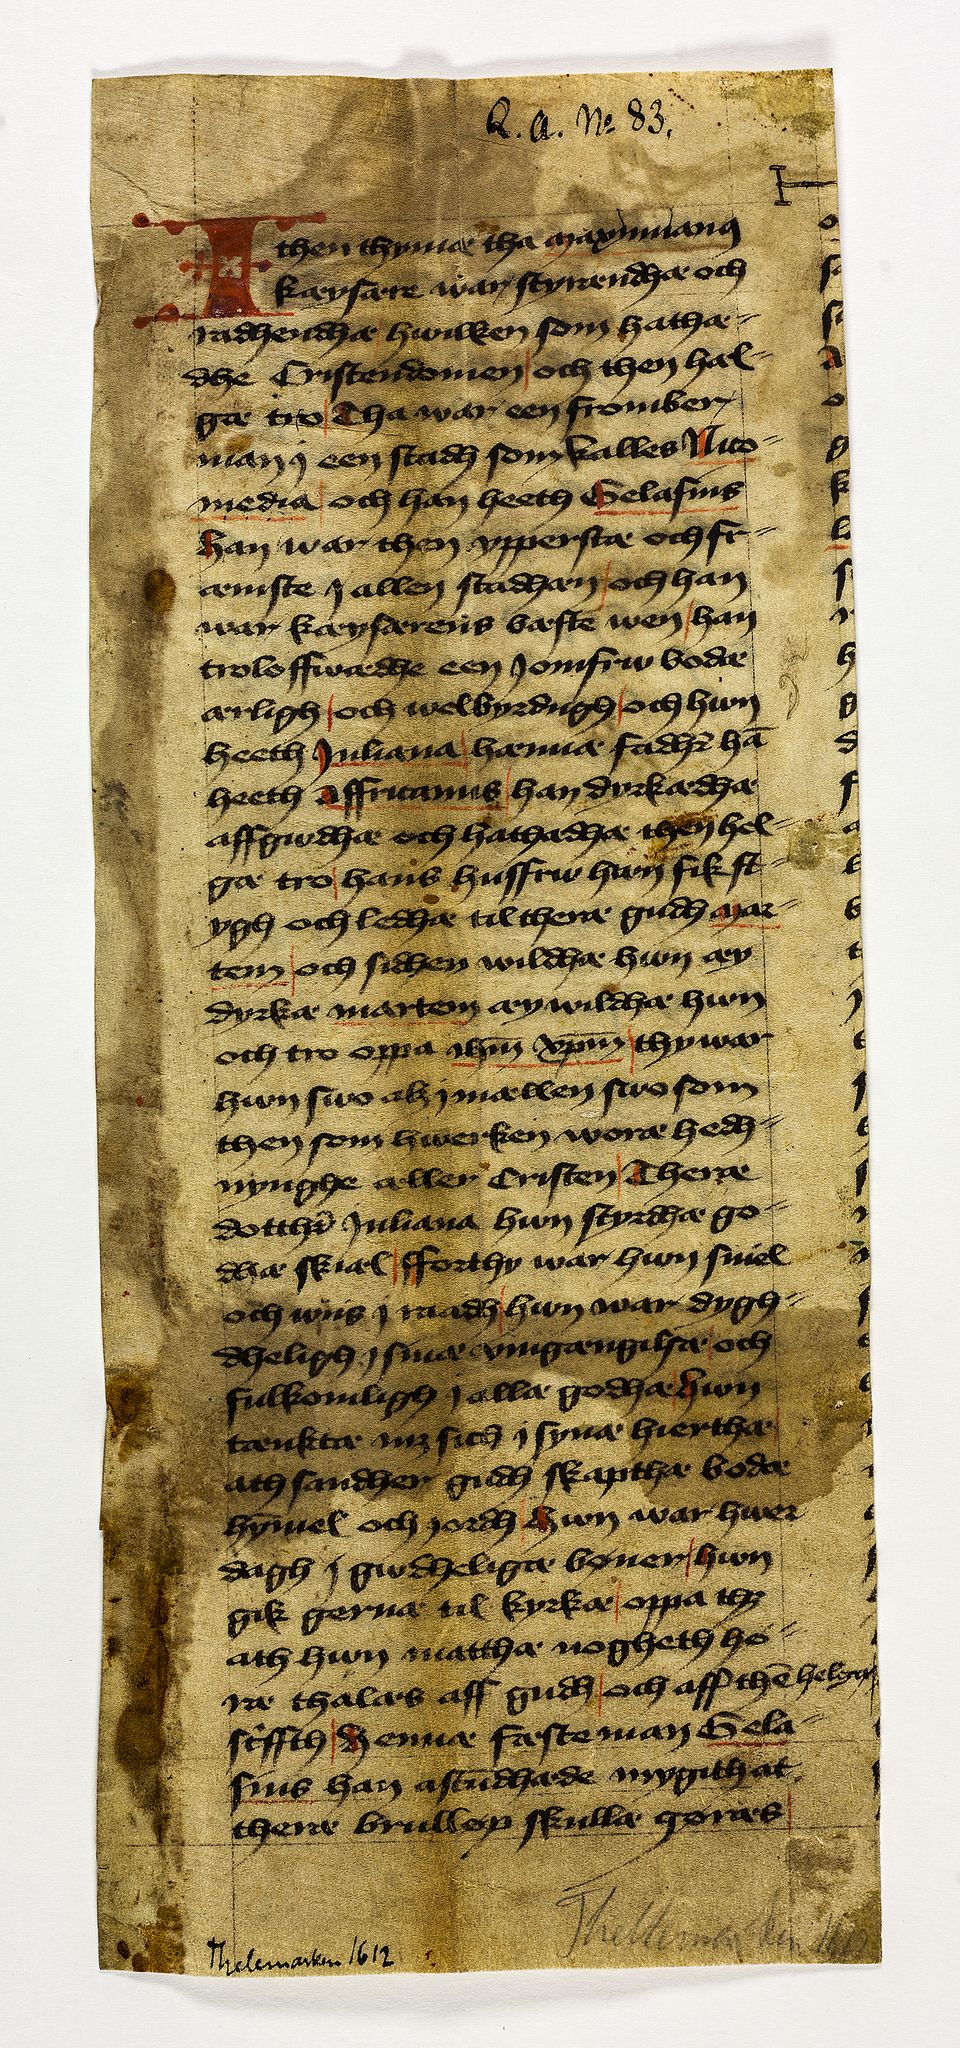 R. A. No 83.
I then thymæ tha maximianus
kæysære war styrændhæ och
radhendhæ hwilken som hathæ-
dhe Cristendomen och then hal-
gæ tro Tha war een fromber
man j een stadh som kalles Nico-
media och han heeth Gelasius
Han war then ypperstæ och fr-
æmste j allen stadhæn och han
war kæysærens bæste wen han
troloffwædhe een Jomfrw bodæ
ærligh och welbyrdugh och hwn
heeth Juliana hænnæ fadh͛ hā
heeth Affricanus han dyrkædhæ
affgwdhæ och hathadhæ then hel-
gæ tro hans hussfrw hwn fik st-
ygh och ledhæ til theræ gudh mar-
tem och sidhen wildhæ hwn æy
dyrkæ martem æy wildhæ hwn
och tro oppa ihm̄ xpm̄ thy war
hwn swo alz j mællen swo som
then som hwerken woræ hedh-
nynghe æller Cristen Theræ
dotth͛ Juliana hwn styrdhæ go-
dhæ skiæl fforthy war hwn sniel
och wiis j raadh hwn war dygh-
dheligh j sinæ vmgængilsæ och
fulkomligh j allæ godhæ Hwn
tænktæ mz sich j synæ hierthæ
ath sandher gudh skapthæ bodæ
hymel och jordh Hwn war hwer
dagh j gwdheligæ böner hwn
gik gernæ til kyrkæ oppa thz
ath hwn matthæ nogheth hö-
ræ thalæs aff gudh och aff thē helgæ
sc͛ffth Hennæ fæste man Gela-
sius han astūdhade mygith at
theræ brullop skullæ göræs
Thelemarken 1612
Thellemarken 1612